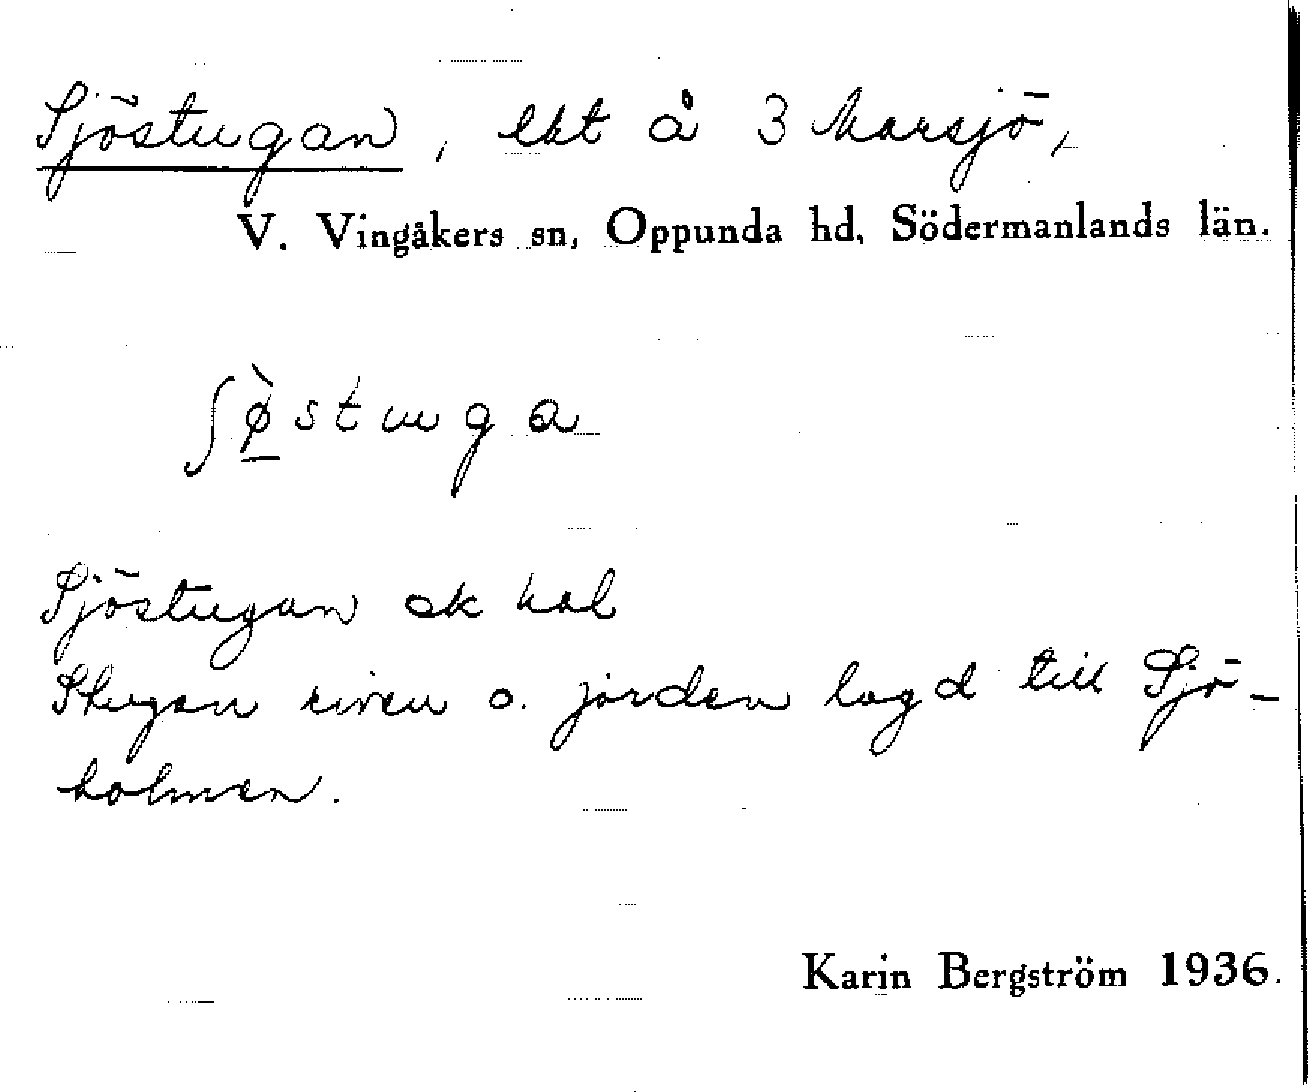 Sjöstugan, lht å 3 Marsjö,
V. Vingåkers sn, Oppunda hd, Södermanlands län.
ʃø̀stuga
Sjöstugan ek kal
Stugan riven o. jorden lagd till Sjö-
holmen.
Karin Bergström 1936.